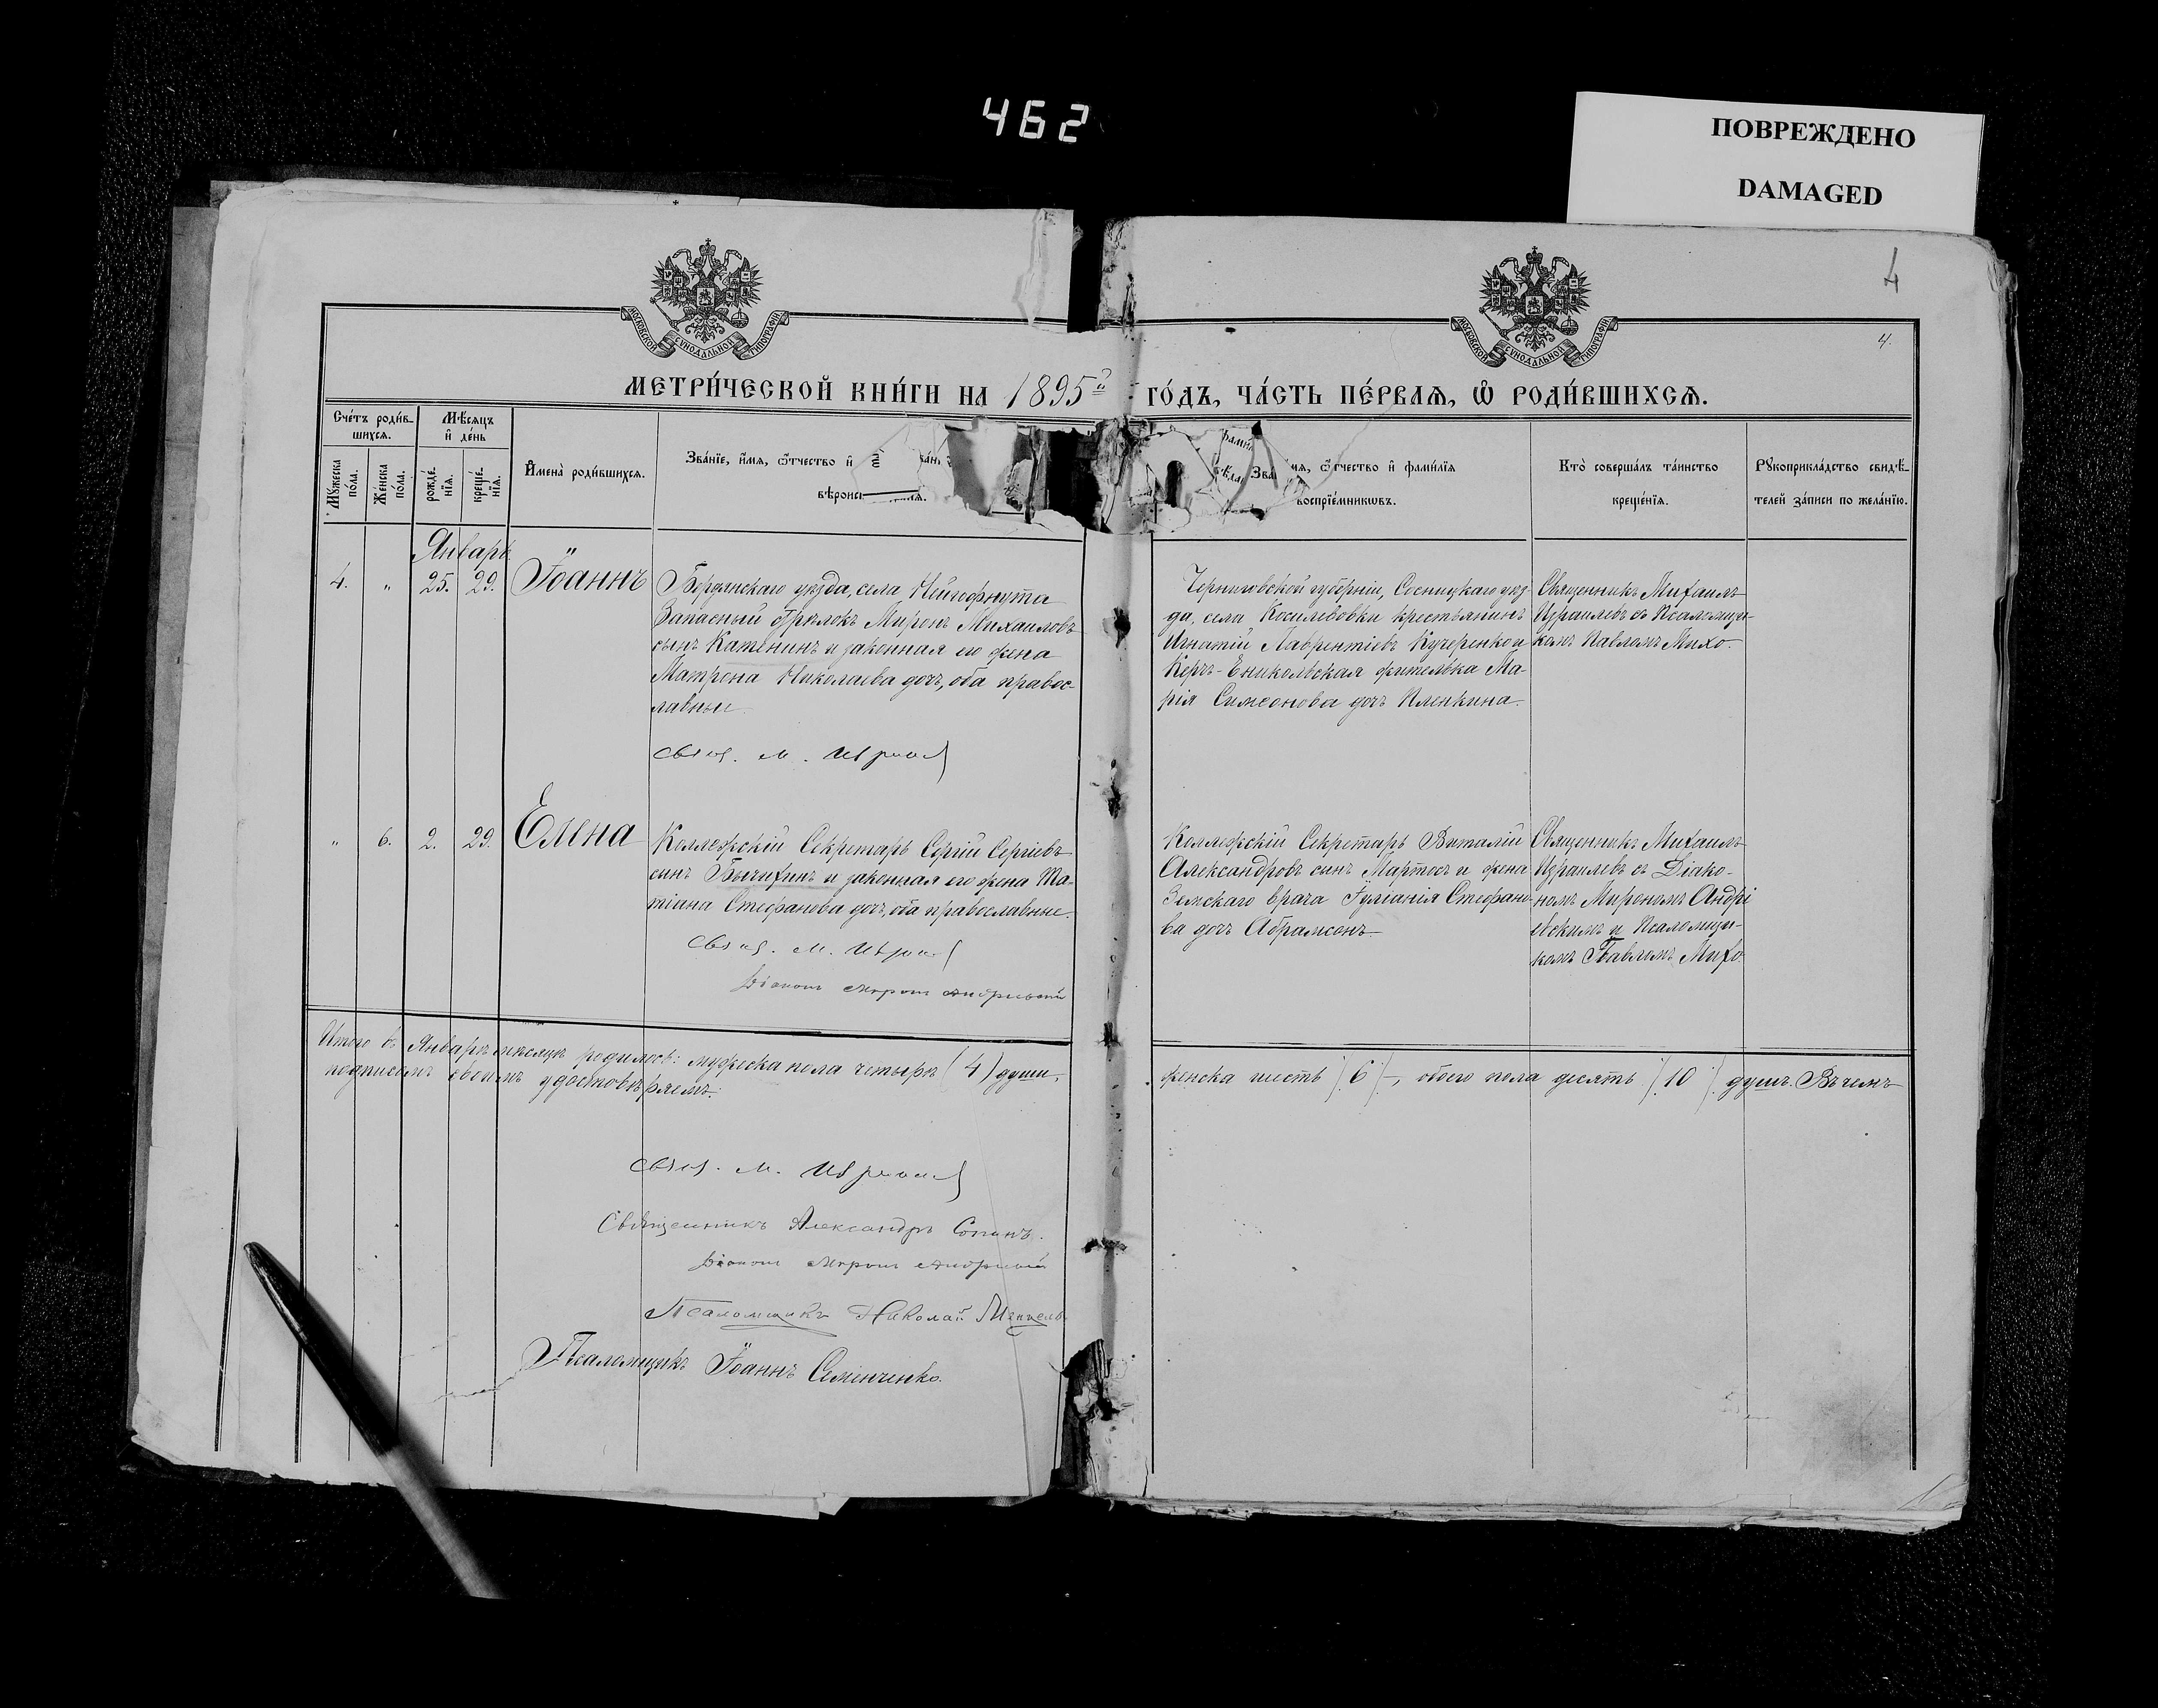 462
ПОВРЕЖДЕНО
DAMAGED
4
4.
МОСКОВСКОЙ СУНОДАЛЬНОЙ ТИПОГРАФІИ
МОСКОВСКОЙ СУНОДАЛЬНОЙ ТИПОГРАФІИ
МЕТРИ́ЧЕСКОЙ КНИ́ГИ НА 1895й ГО́ДЪ, ЧА́СТЬ ПЕ́РВАѦ, Ѽ РОДИ́ВШИХСѦ.
Сче́тъ роди́в-
шихсѧ.
Мѣ́сѧцъ
и҆ де́нь
Мꙋ́жеска по́ла.
Же́нска по́ла.
рожде́нїѧ.
креще́нїѧ.
И҆мена̀ роди́вшихсѧ.
Зва́нїе, и҆́мѧ, ѻ҆́тчество и҆
вѣроис
Зва мѧ, ѻ҆́тчество и҆ фами́лїѧ
воспрїе́мникѡвъ.
Кто̀ соверша́лъ та́инство
креще́нїѧ.
Рꙋкоприкла́дство свидѣ́-
телей за́писи по жела́нїю.
Январь
4. " 25. 29. Іоаннъ
Бердянскаго уѣзда, села Нейгофнута
Запасный Стрѣлокъ Миронъ Михаиловъ
сынъ Катенинъ и законная его жена
Матрона Николаева дочь, оба правос-
лавные.
Свящ. М. Изра
Черниговской губерніи, Сосницкаго уѣз-
да, села крестьянинъ
Игнатій Лаврентіевъ Кучеренко и
Керчь-Еникольская жителька Ма-
рія Симеонова дочь Пленкина.
Священникъ Михаилъ
Израилевъ съ Псаломщи-
комъ Павломъ Михо.
" 6. 2. 29. Елена
Коллежскій Секретарь Сергій Сергіевъ
сынъ Бычихинъ и законная его жена Та-
тіана Стефанова дочь, оба православные.
Свящ. М. Изра
Діаконъ Миронъ Андріевскій
Коллежскій Секретарь Виталій
Александровъ сынъ Мартосъ и жена
Земскаго врача Іуліанія Стефано-
ва дочь Абрамсонъ.
Священникъ Михаилъ
Израилевъ съ Діако-
номъ Мирономъ Андрі
евскимъ и Псаломщи-
комъ Павломъ Михо
Итого въ Январѣ мѣсяцѣ родилось: мужеска пола четыре (4) души,
женска шесть (6), обоего пола десять (10) душъ. Въ чемъ
подписомъ своимъ удостовѣряемъ:
Свящ. М. Изра
Священникъ Александръ Сопинъ.
Діаконъ Миронъ Андріевскій
Псаломщикъ Николай
Псаломщикъ Іоаннъ Семенченко.